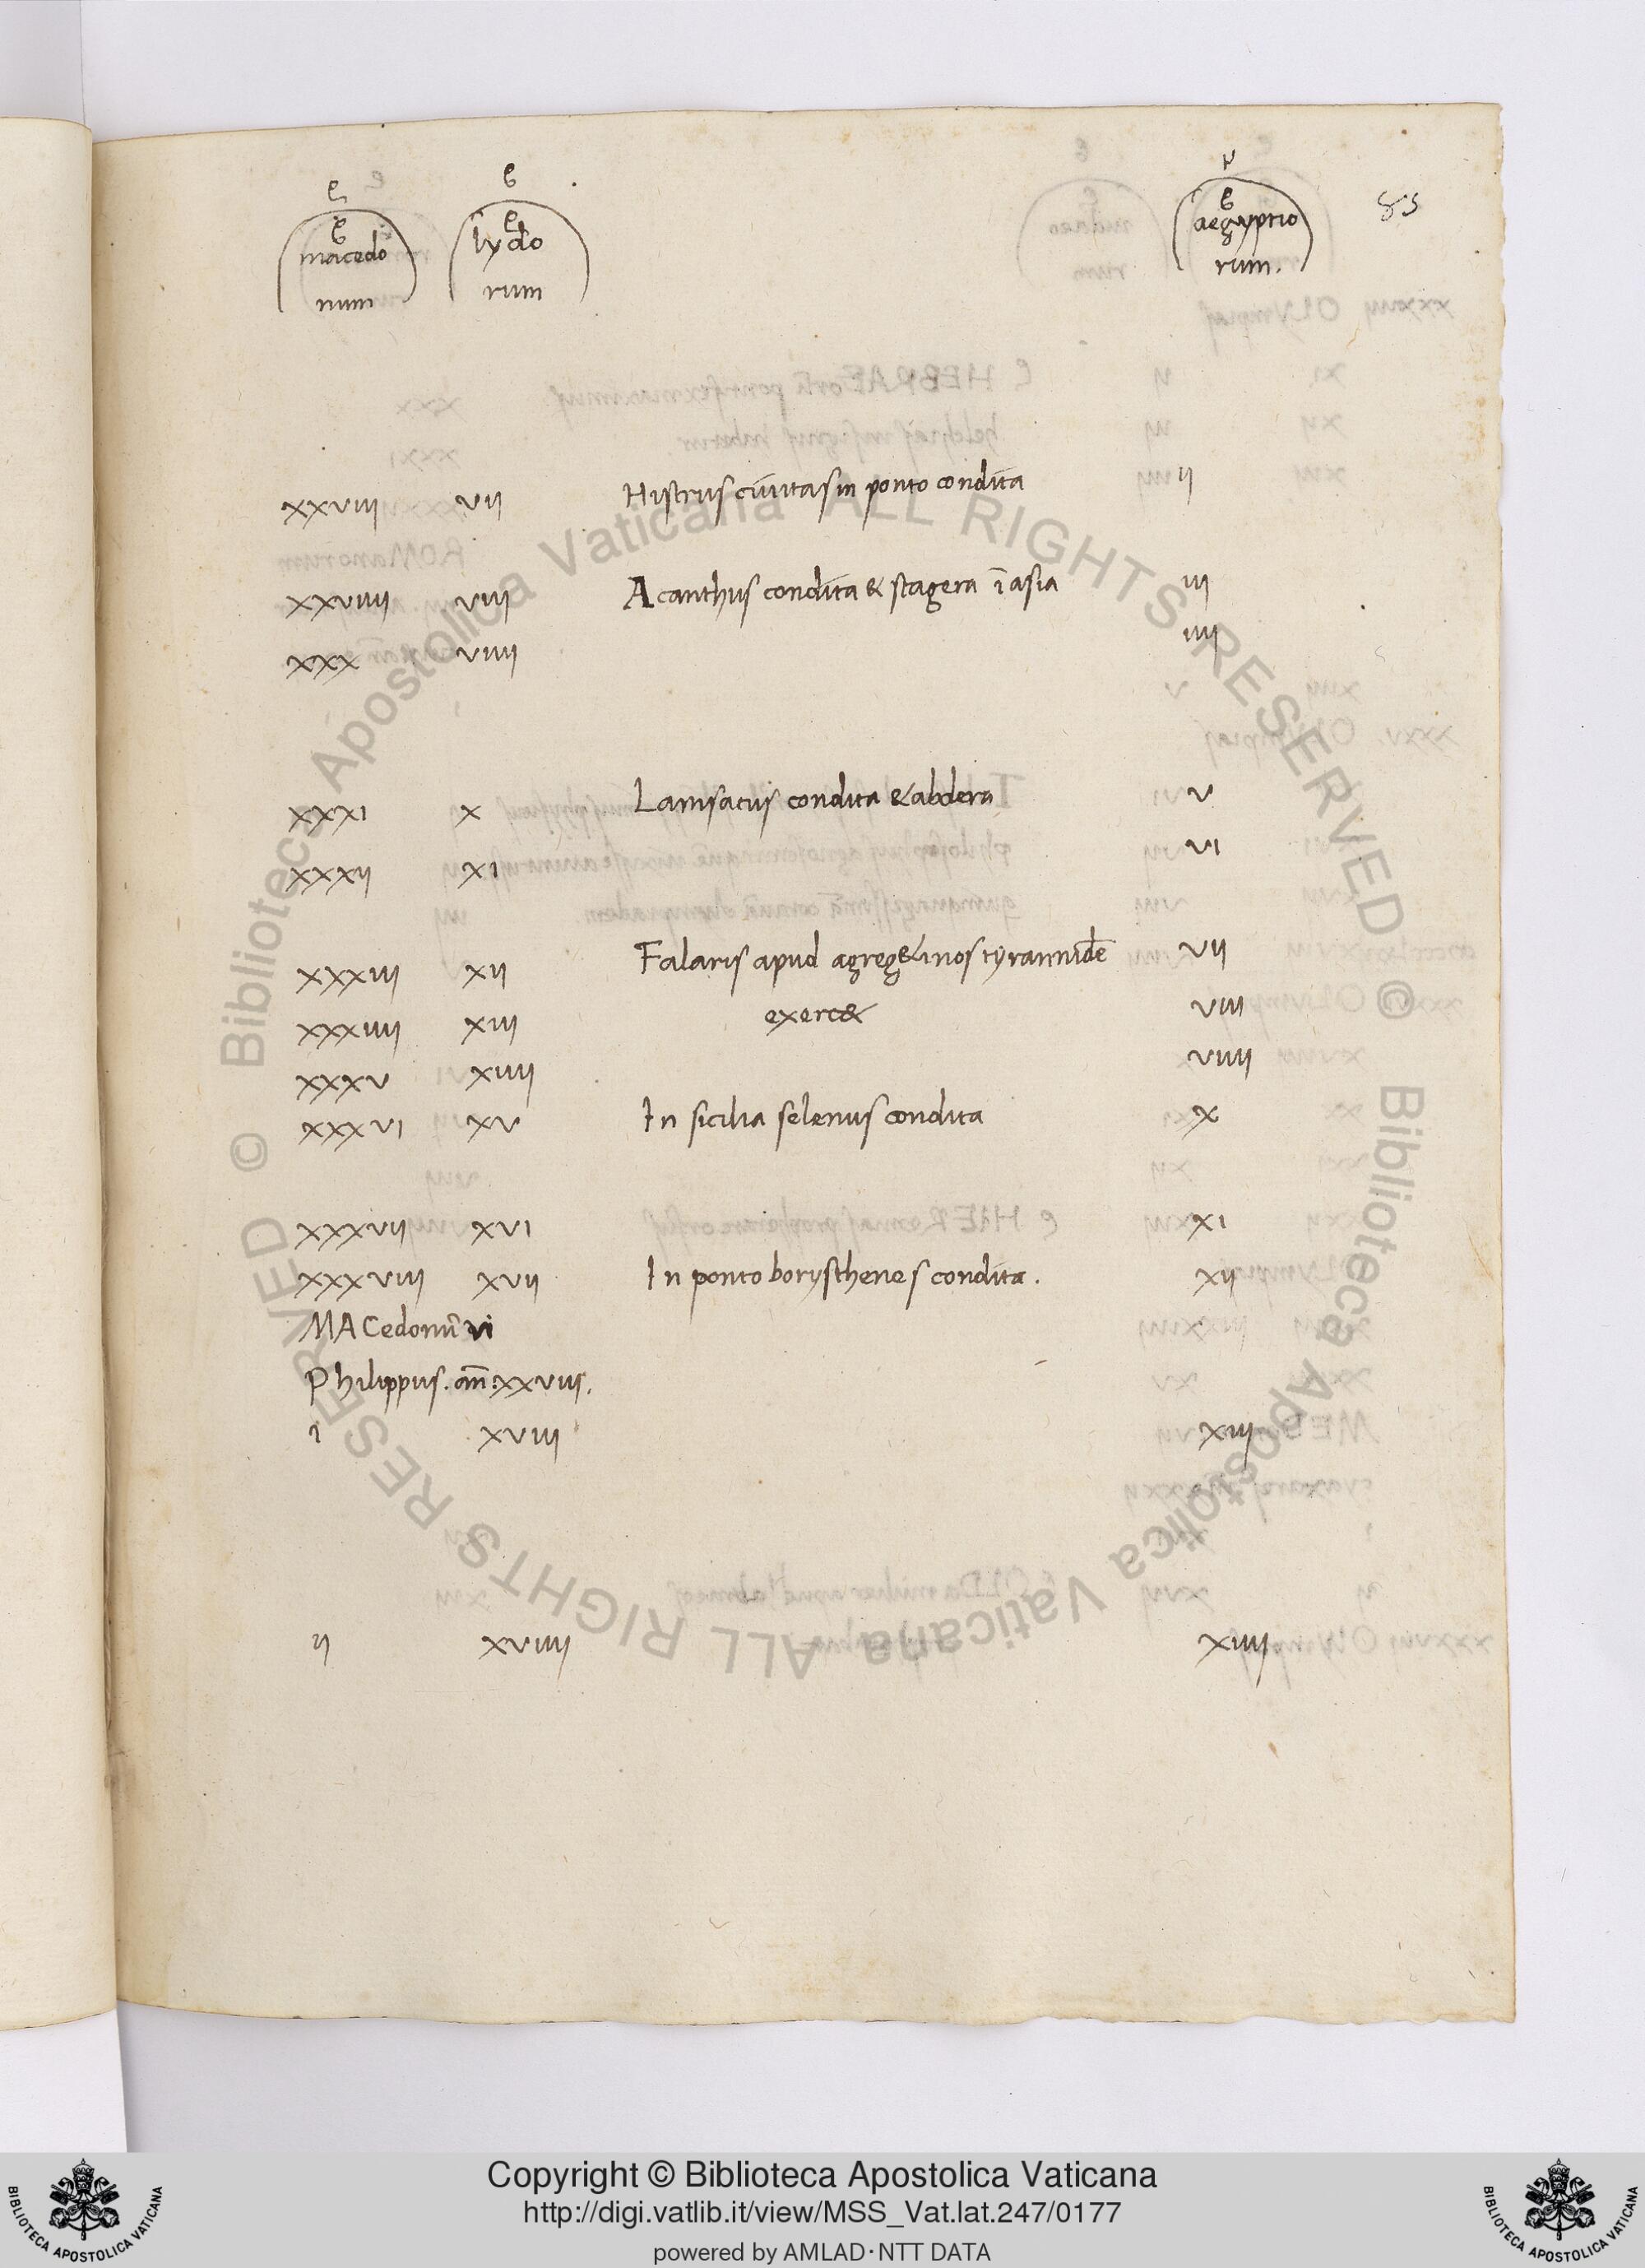 85
macedo
num
lydo
rum
aegyptio
rum.
xxviii vii Histrus civitas in ponto condita ii
xxviiii viii Acanthus condita & stagera ī asia iii
xxx viiii iiii
xxxi x Lamsacus condita & abdera v
xxxii xi vi
xxxiii xii Falaris apud agreg&inos tyrannidē vii
xxxiiii xiii exerc& viii
xxxv xiiii viiii
xxxvi xv In sicilia selenus condita x
xxxvii xvi xi
xxxviii xvii In ponto borysthenes condita. xii
MACedonū vi
Philippus. ann̄. xxviii.
i xviii xiii
ii xviiii xiiii
© Biblioteca Apostolica Vaticana ALL RIGHTS RESERVED © Biblioteca Apostolica Vaticana ALL RIGHTS RESERVED
BIBLIOTECA APOSTOLICA VATICANA
Copyright © Biblioteca Apostolica Vaticana
http://digi.vatlib.it/view/MSS_Vat.lat.247/0177
powered by AMLAD·NTT DATA
BIBLIOTECA APOSTOLICA VATICANA